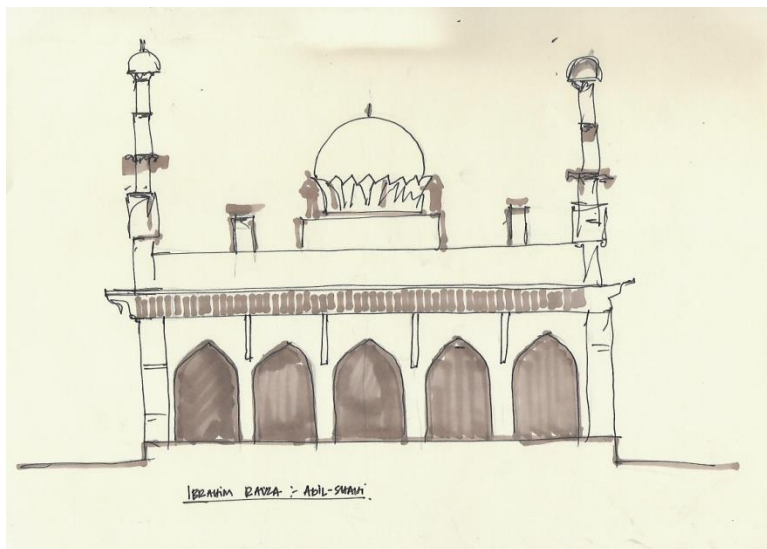 IBRAHIM RAUZA :- ADIL-SHAHI.